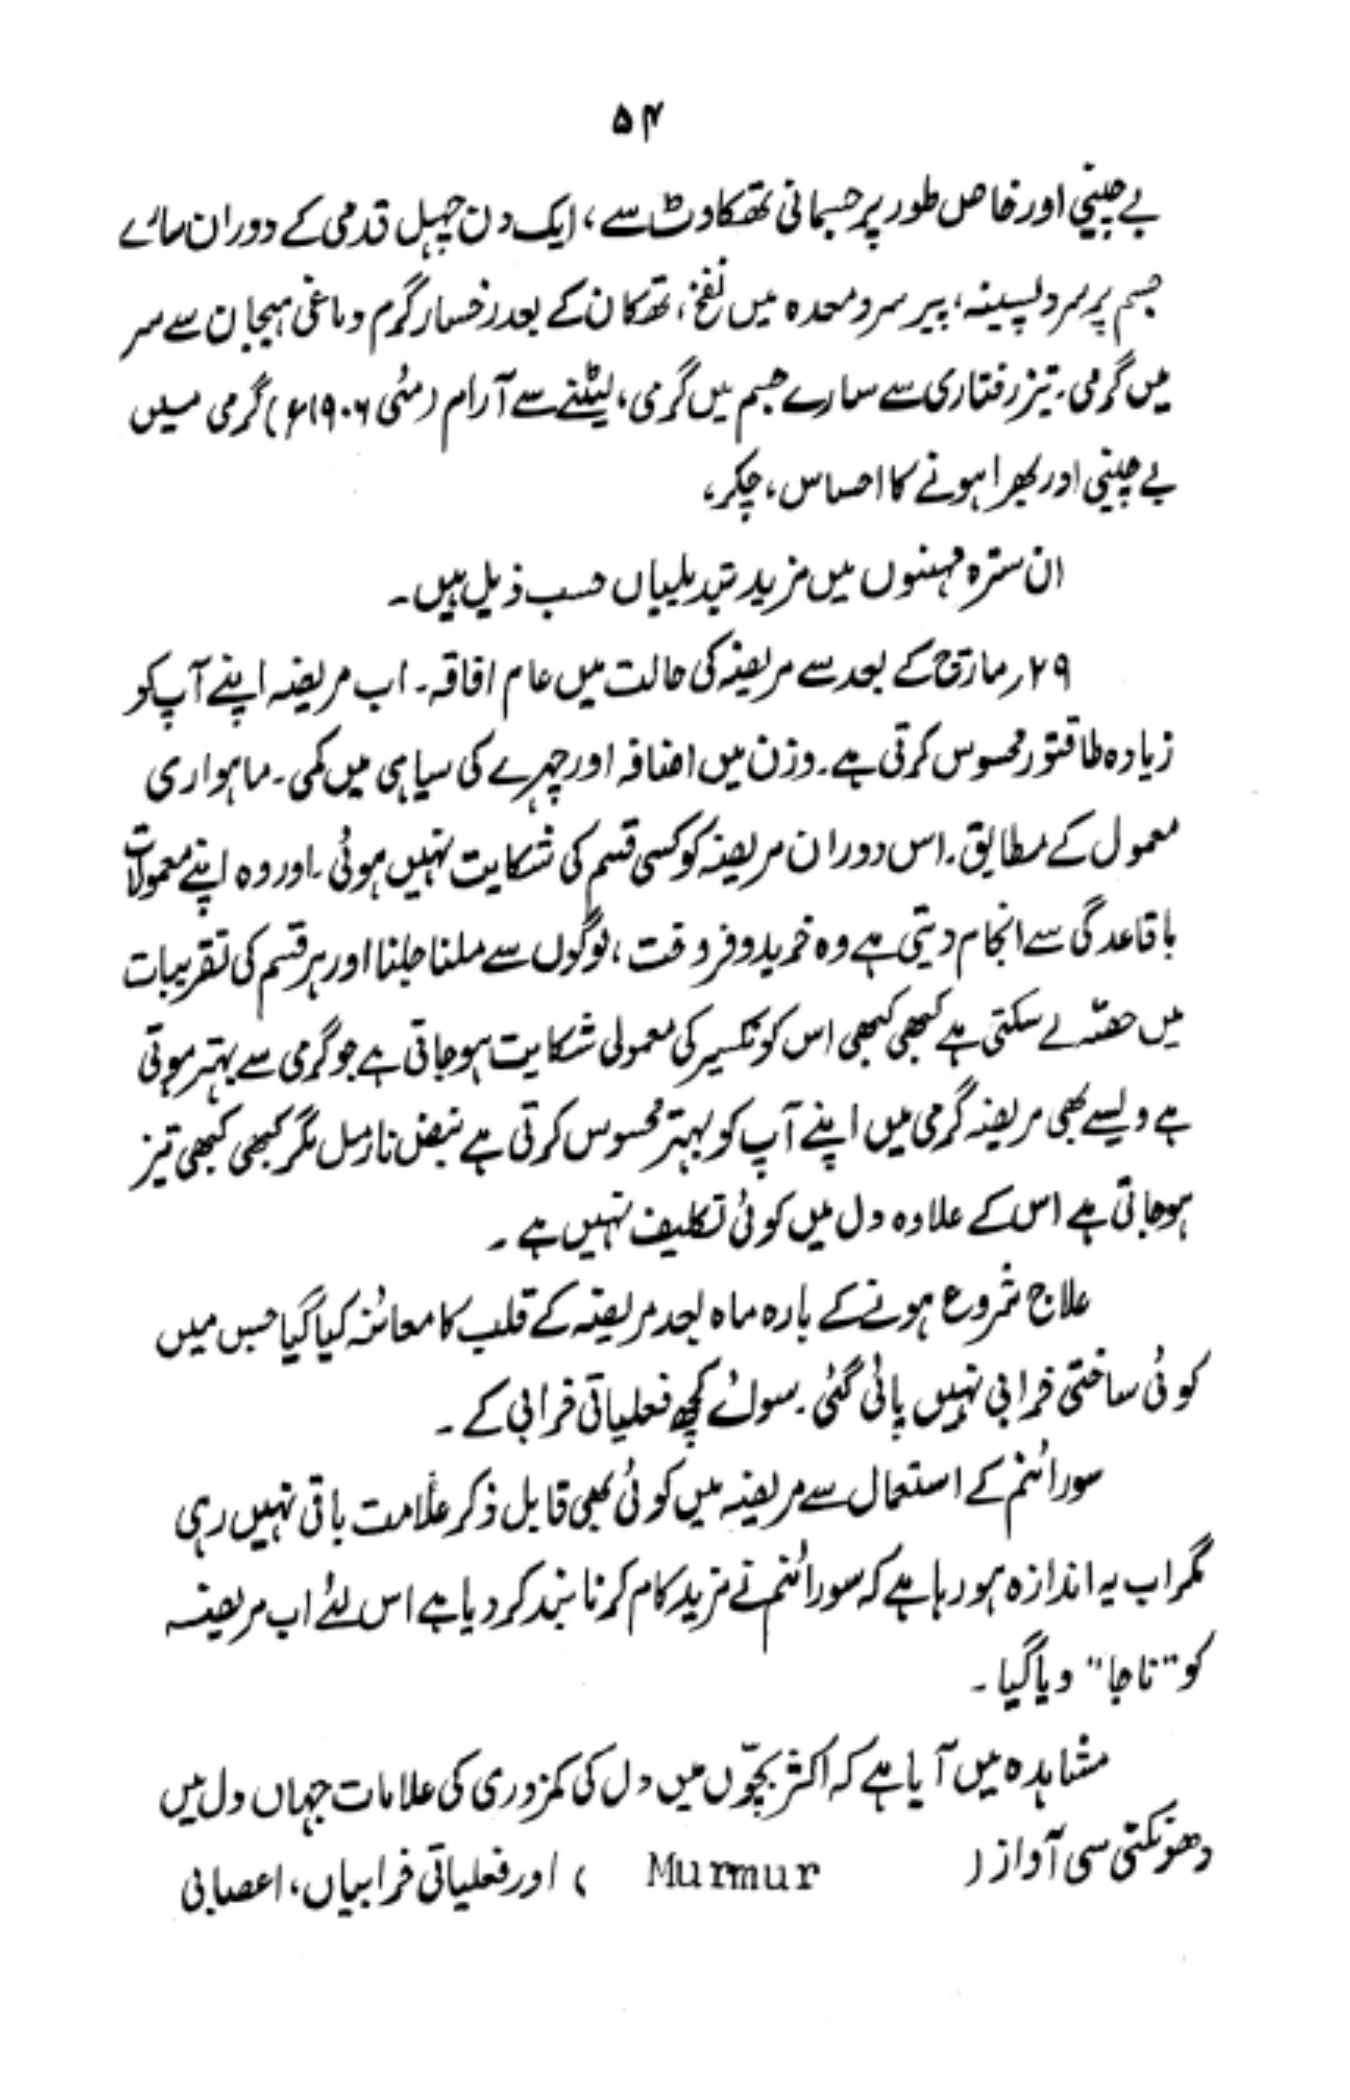 ۵۴
بے چینی اور خاص طور پر جسمانی تھکاوٹ سے، ایک دن چہل قدمی کے دوران سارے
جسم پر سرد پسینہ، پیر سرد معدہ میں نفخ، تھکان کے بعد رخسار گرم دماغی ہیجان سے سر
میں گرمی۔ تیز رفتاری سے سارے جسم میں گرمی، لیٹنے سے آرام (مئی ۱۹۰۶ء) گرمی میں
بے چینی اور بھرا ہونے کا احساس، چکر،
ان سترہ مہینوں میں مزید تبدیلیاں حسب ذیل ہیں۔
۲۹ر مارچ کے بعد سے مریضہ کی حالت میں عام افاقہ۔ اب مریضہ اپنے آپ کو
زیادہ طاقتور محسوس کرتی ہے۔ وزن میں اضافہ اور چہرے کی سیاہی میں کمی۔ ماہواری
معمول کے مطابق۔ اس دوران مریضہ کو کسی قسم کی شکایت نہیں ہوئی۔ اور وہ اپنے معمولات
باقاعدگی سے انجام دیتی ہے وہ خرید و فروخت، لوگوں سے ملنا جلنا اور ہر قسم کی تقریبات
میں حصّہ لے سکتی ہے کبھی کبھی اس کو نکسیر کی معمولی شکایت ہو جاتی ہے جو گرمی سے بہتر ہوتی
ہے ویسے بھی مریضہ گرمی میں اپنے آپ کو بہتر محسوس کرتی ہے نبض نارمل مگر کبھی کبھی تیز
ہو جاتی ہے اس کے علاوہ دل میں کوئی تکلیف نہیں ہے۔
علاج شروع ہونے کے بارہ ماہ بعد مریضہ کے قلب کا معائنہ کیا گیا جس میں
کوئی ساختی خرابی نہیں پائی گئی۔ سوائے کچھ فعلیاتی خرابی کے۔
سورائنم کے استعمال سے مریضہ میں کوئی بھی قابل ذکر علامت باقی نہیں رہی
مگر اب یہ اندازہ ہو رہا ہے کہ سورائنم نے مزید کام کرنا بند کر دیا ہے اس لئے اب مریضہ
کو "ناجا" دیا گیا۔
مشاہدہ میں آیا ہے کہ اکثر بچّوں میں دل کی کمزوری کی علامات جہاں دل میں
دھونکتی سی آواز ( Murmur ) اور فعلیاتی خرابیاں، اعصابی